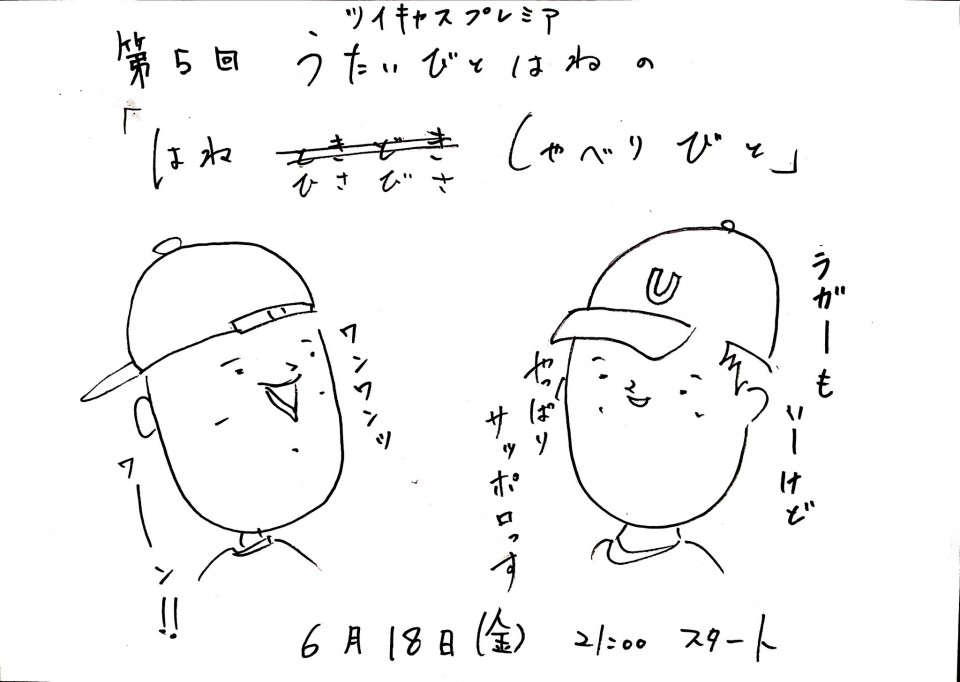 ツイキャスプレミア
第5回 うたいびとはねの
「はね ときどき しゃべりびと」
ひさびさ
ワンワンッ
ワーーン!!
U
ラガーも
いーけど
やっぱり
サッポロっす
6月18日(金) 21:00 スタート